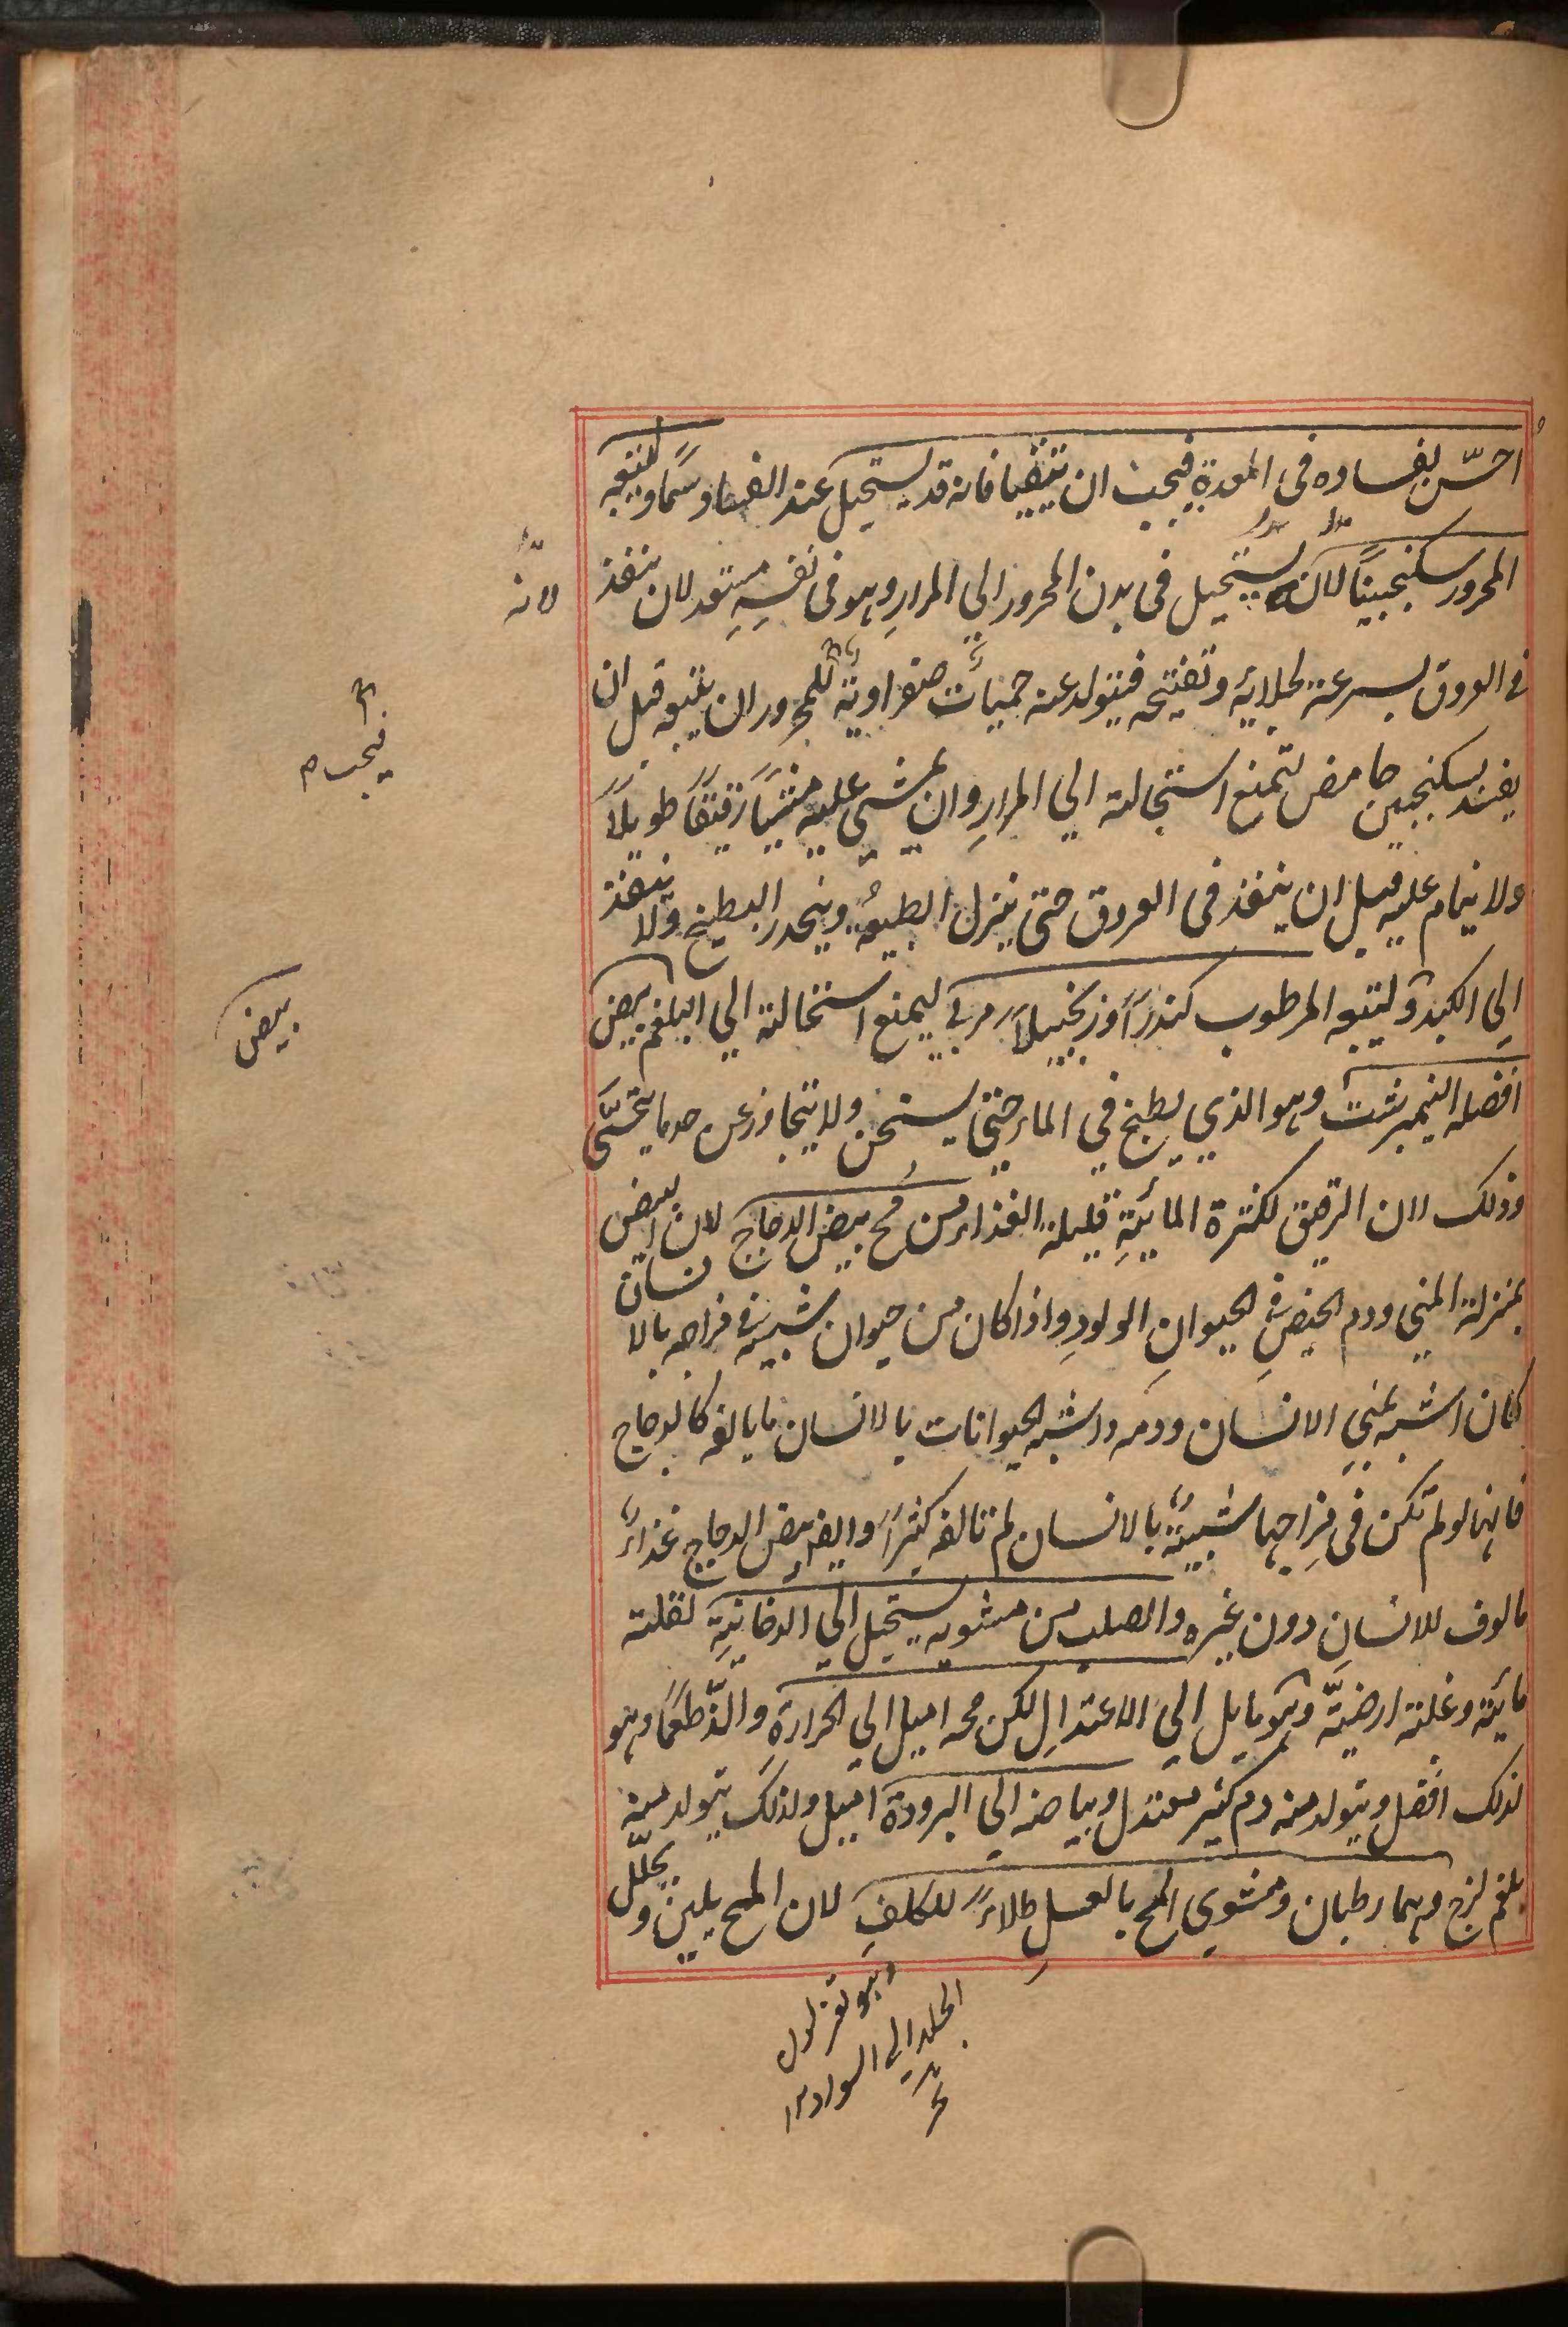 احسّ بفساده فى المعدة فيجب ان يتقيا فانه قد يستحيل عند الفساد سمّا وليتبعه
المحرور سكنجبيناً لانه يستحيل فى بدن المحرور الي المرارِ وهو فى نفسِهِ مستعد لان ينفذ
فى العروق بسرعة لجلائه وتفتيحه فيتولد عنه حميات صفراوية للمحرور ان يتبعه قبل ان
يفسد بسكنجبين حامض لتمنع استحالته الي المرارِ وان يمشي عليه مشياً رقيقاً طويلاً
ولا ينام عليه قبل ان ينفذ فى العروق حتى ينزل الطبيعة وينحدر البطيخ ولا ينفذ
الي الكبد وليتبعه المرطوب كندراً وزنجبيلاً مربى ليمنع استحالته الي البلغم بيض
افضله النيمبرشت وهو الذي يطبخ في الماء حتى يسخن ولا يتجاوز عن حد ما يتحسّى
وذلك لان الرقيق لكثرة المائيةِ قليلة الغذاء من مُح بيض الدجاج لان البيض
بمنزلة المني ودم الحيض فى الحيوانِ الولودِ واذا كان من حيوان شبيه فى مزاجه بالانسان
كان اشبه بمني الانسان ودمه واشبه الحيوانات بالانسان ما يالفه كالدجاج
فانها لو لم تكن فى مزاجها شبيهة بالانسان لم تالفه كثيراً وايضا بيض الدجاج غذاء
مالوف للانسانِ دون غيره والصلب من مشويه يستحيل الي الدخانيةِ لقلة
مائية وغلبة ارضيّة وهو مايل الي الاعتدالِ لكن محه اميل الي الحرارة والذّ طعماً وهو
لذلك افضل ويتولد منه دم كثير معتدل وبياضه الي البرودة اميل ولذلك يتولد منه
بلغم لزج وهما رطبان ومشوي المح بالعسلِ طلاءً للكلفِ لان المح يلين ويحلّل
لانه
فيجب م
بيض
وهو تغير لون
الجلد الي السواد ١٢